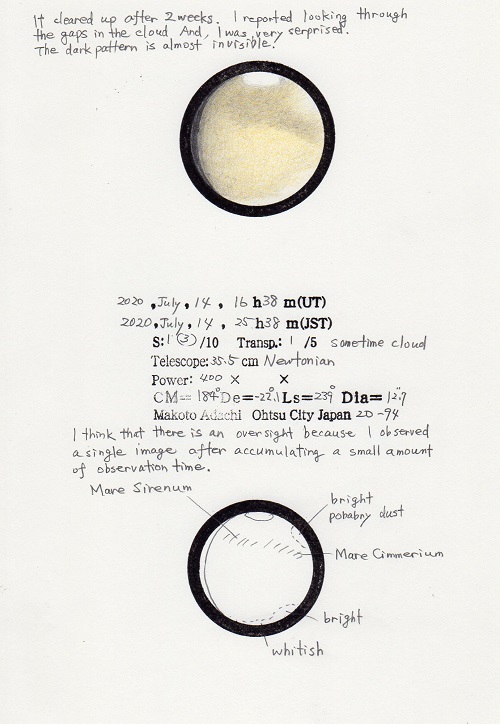 It cleared up after 2 weeks. I reported looking through
the gaps in the cloud. And, I was very serprised.
The dark pattern is almost invisible.
2020, July, 14, 16 h 38 m(UT)
2020, July, 14, 25 h 38 m(JST)
S: 1 (3) /10 Transp.: 1 /5 sometime cloud
Telescope: 35.5 cm Newtonian
Power: 400 × ×
CM= 184° De= -22.°1 Ls= 239° Dia= 12."7
Makoto Adachi Ohtsu City Japan 20-94
I think that there is an oversight because I observed
a single image after accumulating a small amount
of observation time.
Mare Sirenum
bright
pobabny dust
Mare Cimmerium
bright
whitish